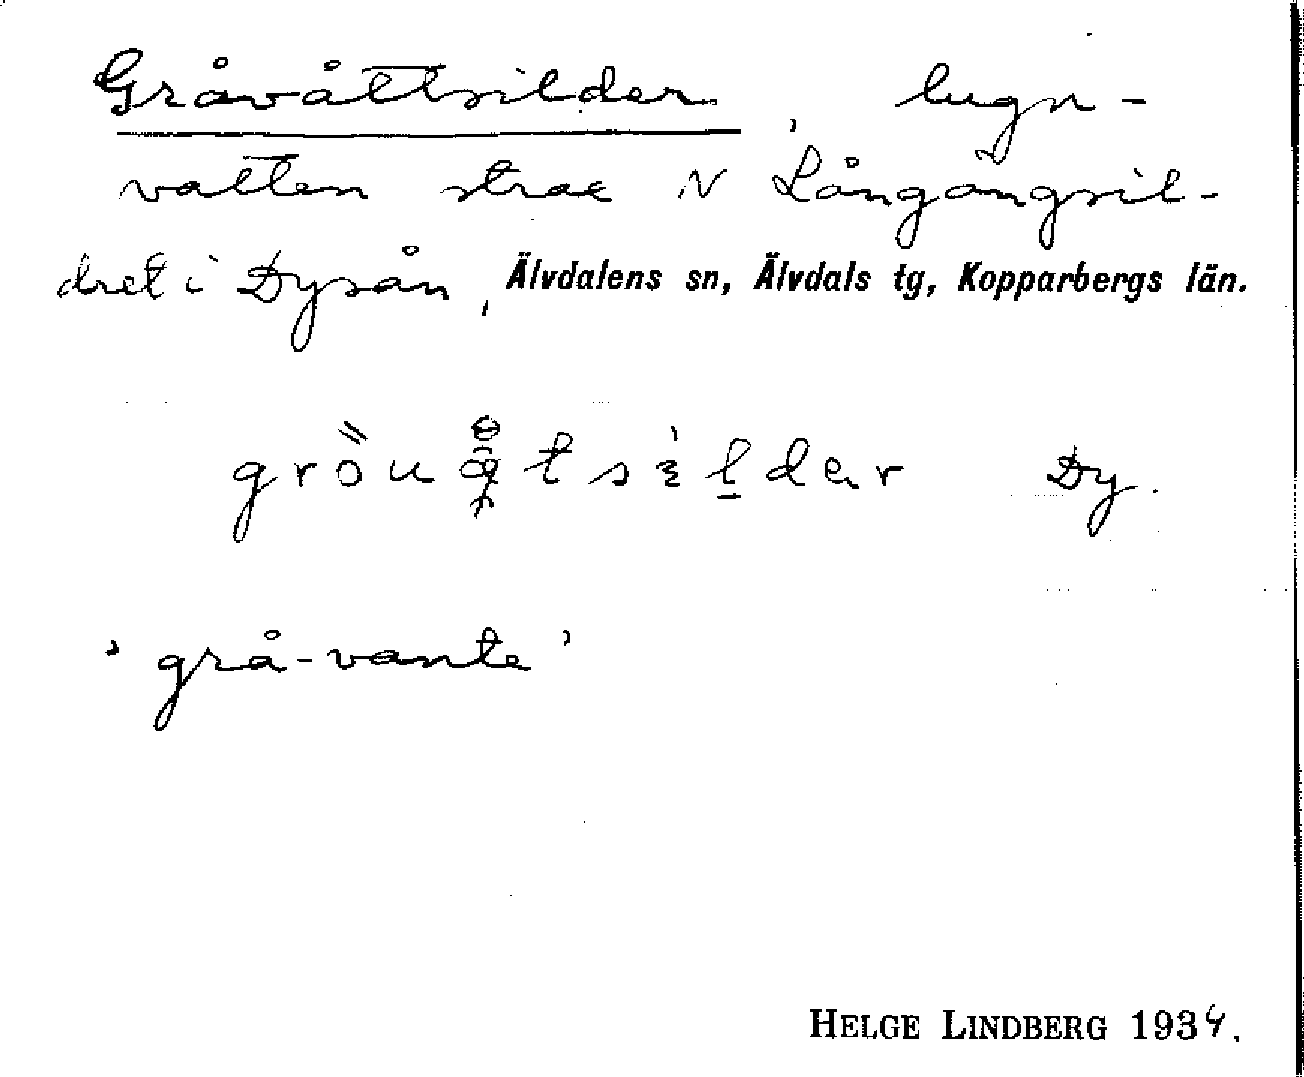 Gråvåttsilder, lugn-
vatten strax N Långångsil-
dret i Dysån, Älvdalens sn, Älvdals tg, Kopparbergs län.
Dy.
'grå-vante'
HELGE LINDBERG 1934.